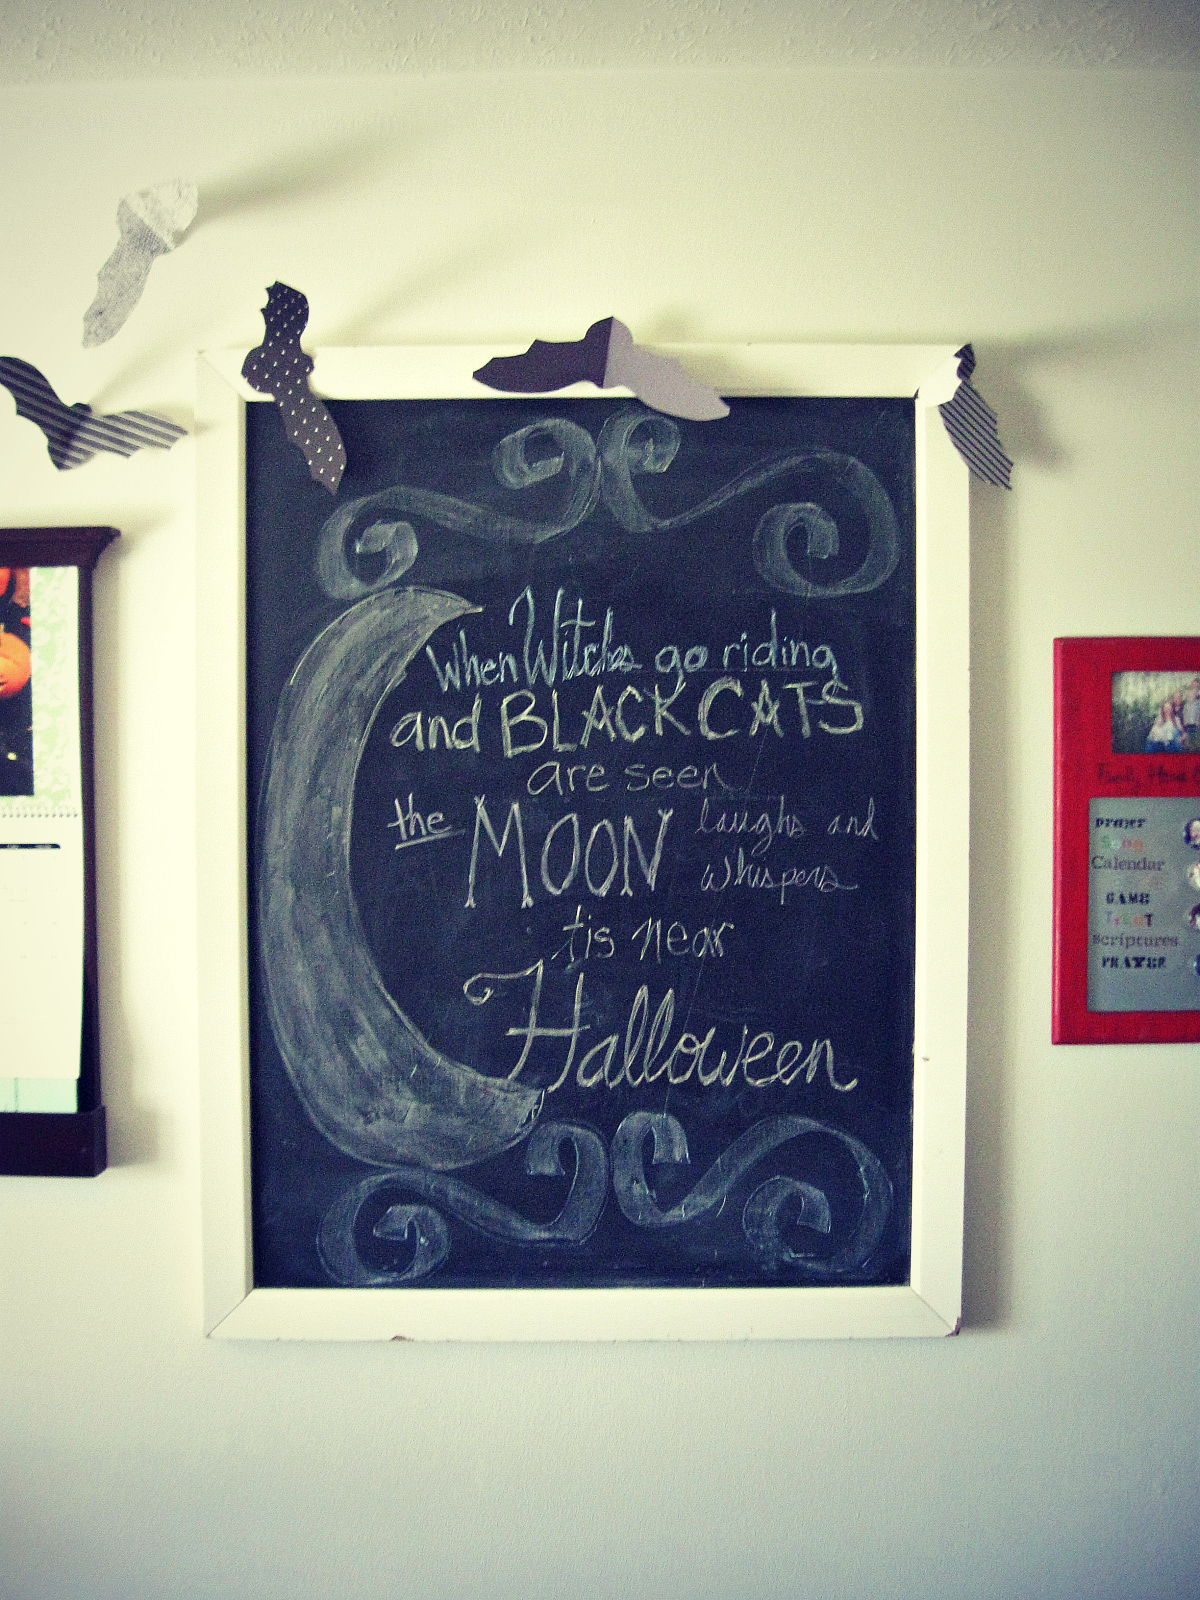 When Witches go riding
and BLACK CATS
are seen
the MOON laughs and
whispers
tis near
Halloween
Family Home
PRAYER
Song
Calendar
GAME
TREAT
Scriptures
PRAYER